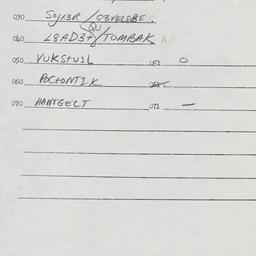 030 SOJX3R / G3VELSBE.
QU
040 L8AD3+ / TOMBAK
050 VUKS+U1L 051 0
060 POC+ON+1K
070 HANTGELT 071 —